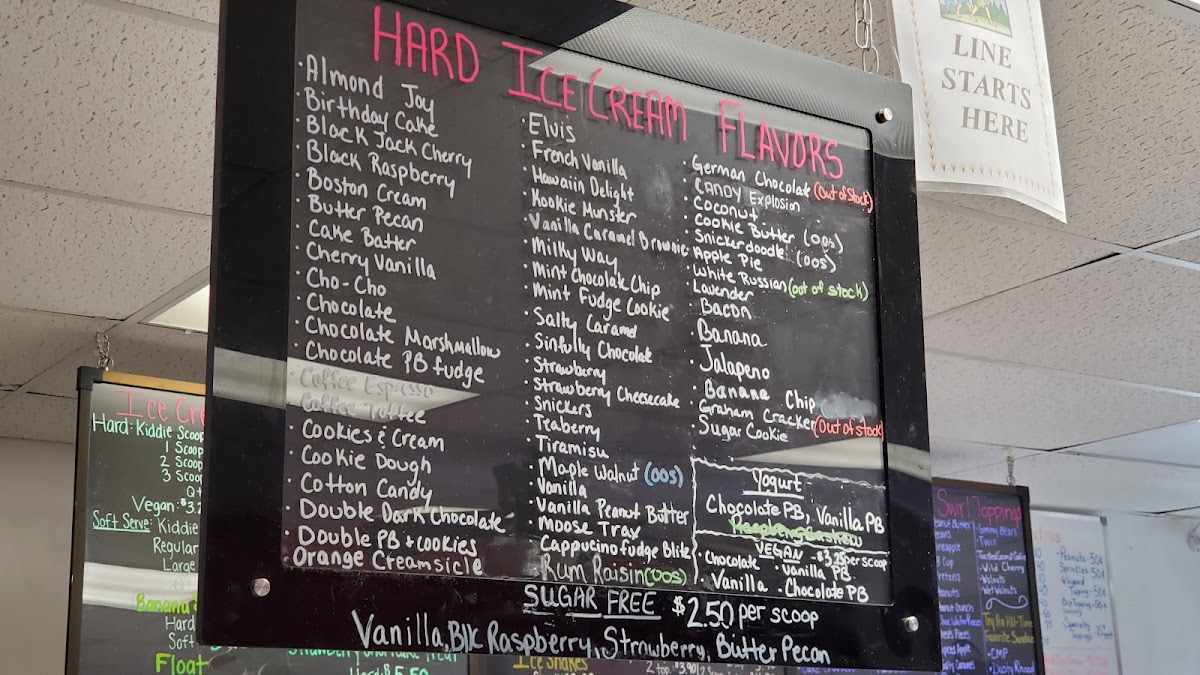 HARD ICE CREAM FLAVORS
· Almond Joy
· Birthday Cake
· Black Jack Cherry
· Black Raspberry
· Boston Cream
· Butter Pecan
· Cake Batter
· Cherry Vanilla
· Cho-Cho
· Chocolate
· Chocolate Marshmallow
· Chocolate PB fudge
· Coffee Espresso
· Coffee Toffee
· Cookies & Cream
· Cookie Dough
· Cotton Candy
· Double Dark Chocolate
· Double PB + cookies
Orange Creamsicle
· Elvis
· French Vanilla
· Hawaiin Delight
· Kookie Munster
· Vanilla Caramel Brownie
· Milky Way
· Mint Chocolate Chip
· Mint Fudge Cookie
· Salty Caramel
· Sinfully Chocolate
· Strawberry
· Strawberry Cheesecake
· Snickers
· Teaberry
· Tiramisu
· Maple Walnut (OOS)
· Vanilla
· Vanilla Peanut Butter
· Moose Trax
· Cappucino fudge Blitz
Rum Raisin (OOS)
· German Chocolate (Out of Stock)
· CANDY Explosion
· Coconut
· Cookie Butter (OOS)
· Snickerdoodle (OOS)
· Apple Pie
· White Russian (out of stock)
· Lavender
· Bacon
· Banana
· Jalapeno
· Banana Chip
· Graham Cracker
· Sugar Cookie (Out of stock)
Yogurt
Chocolate PB, Vanilla PB
VEGAN - $3.25 per scoop
· Chocolate · Vanilla PB
· Vanilla · Chocolate PB
SUGAR FREE $2.50 per scoop
Vanilla, Blk Raspberry, Strawberry, Butter Pecan
LINE
STARTS
HERE
Ice Cre
Hard: Kiddie Scoop
1 Scoop
2 Scoop
3 Scoop
Vegan: $3.2
Soft Serve: Kiddie
Regular
Large
Banana
Hard
Soft
Float
Hard: $5.50
Ice Shakes
Swirl Toppings
Peanut Butter
· Gummy Bears
· Twix
· Wild Cherry
· Walnuts
· Wet Walnuts
Try An All-Time
Favorite Sundae
· CMP
· Dusty Road
· Peanuts - 50¢
Sprinkles - 50¢
· Whipped
Topping - 50¢
· Specialty
Toppings